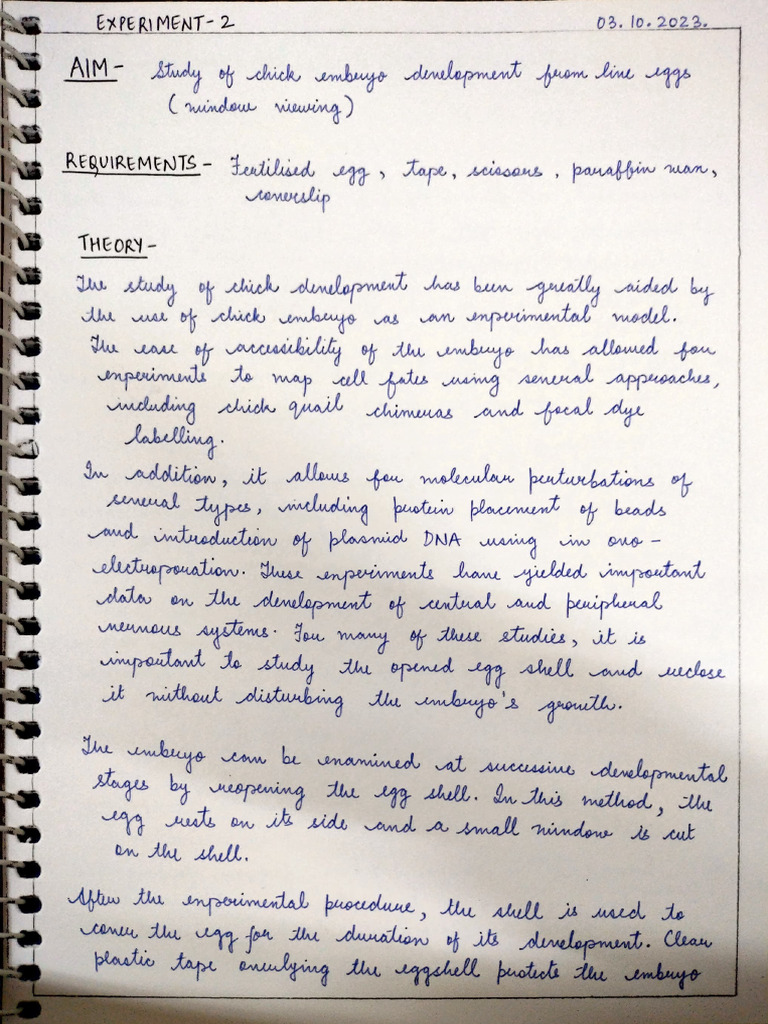 EXPERIMENT-2 03.10.2023.
AIM- Study of chick embryo development from live eggs
(window viewing)
REQUIREMENTS- Fertilised egg, tape, scissors, paraffin wax,
coverslip
THEORY-
The study of chick development has been greatly aided by
the use of chick embryo as an experimental model.
The ease of accessibility of the embryo has allowed for
experiments to map cell fates using several approaches,
including chick quail chimeras and focal dye
labelling.
In addition, it allows for molecular perturbations of
several types, including protein placement of beads
and introduction of plasmid DNA using in ovo-
electroporation. These experiments have yielded important
data on the development of central and peripheral
nervous systems. For many of these studies, it is
important to study the opened egg shell and reclose
it without disturbing the embryo's growth.
The embryo can be examined at successive developmental
stages by reopening the egg shell. In this method, the
egg rests on its side and a small window is cut
on the shell.
After the experimental procedure, the shell is used to
cover the egg for the duration of its development. Clear
plastic tape overlying the eggshell protects the embryo